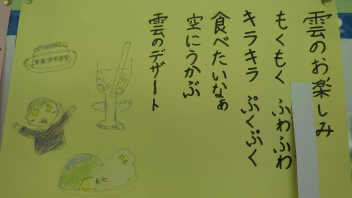 雲のお楽しみ
もくもく ふわふわ
キラキラ ぷくぷく
食べたいなぁ
空にうかぶ
雲のデザート